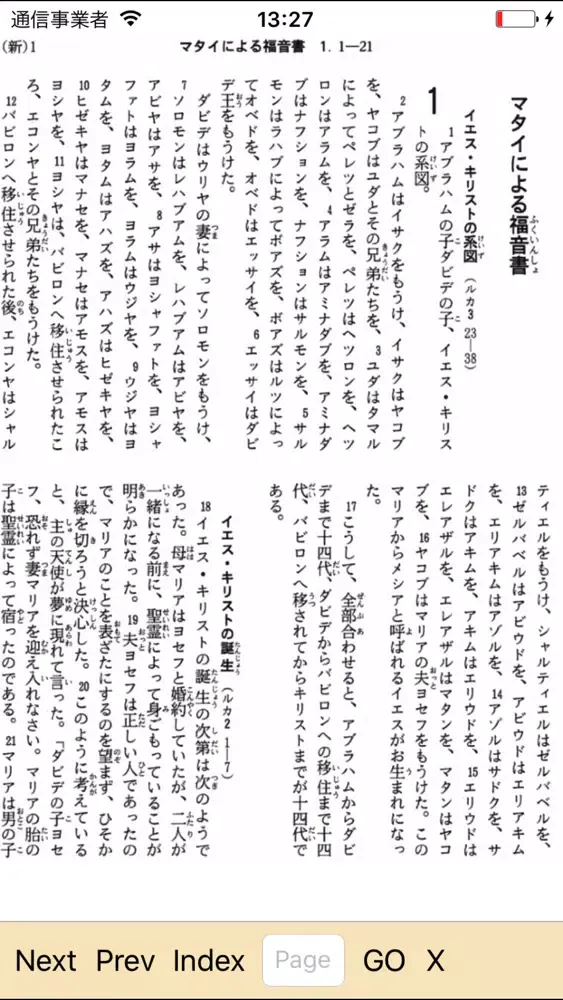 通信事業者 13:27
(新)1 マタイによる福音書 1. 1―21
マタイによる福音書
イエス・キリストの系図 (ルカ3 23―38)
1
1アブラハムの子ダビデの子、イエス・キリス
トの系図。
2アブラハムはイサクをもうけ、イサクはヤコブ
を、ヤコブはユダとその兄弟たちを、3ユダはタマル
によってペレツとゼラを、ペレツはヘツロンを、ヘツ
ロンはアラムを、4アラムはアミナダブを、アミナダ
ブはナフションを、ナフションはサルモンを、5サル
モンはラハブによってボアズを、ボアズはルツによっ
てオベドを、オベドはエッサイを、6エッサイはダビ
デ王をもうけた。
ダビデはウリヤの妻によってソロモンをもうけ、
7ソロモンはレハブアムを、レハブアムはアビヤを、
アビヤはアサを、8アサはヨシャファトを、ヨシャ
ファトはヨラムを、ヨラムはウジヤを、9ウジヤはヨ
タムを、ヨタムはアハズを、アハズはヒゼキヤを、
10ヒゼキヤはマナセを、マナセはアモスを、アモスは
ヨシヤを、11ヨシヤは、バビロンへ移住させられたこ
ろ、エコンヤとその兄弟たちをもうけた。
12バビロンへ移住させられた後、エコンヤはシャル
ティエルをもうけ、シャルティエルはゼルバベルを、
13ゼルバベルはアビウドを、アビウドはエリアキム
を、エリアキムはアゾルを、14アゾルはサドクを、サ
ドクはアキムを、アキムはエリウドを、15エリウドは
エレアザルを、エレアザルはマタンを、マタンはヤコ
ブを、16ヤコブはマリアの夫ヨセフをもうけた。この
マリアからメシアと呼ばれるイエスがお生まれになっ
た。
17こうして、全部合わせると、アブラハムからダビ
デまで十四代、ダビデからバビロンへの移住まで十四
代、バビロンへ移されてからキリストまでが十四代で
ある。
イエス・キリストの誕生 (ルカ2 1―7)
18イエス・キリストの誕生の次第は次のようで
あった。母マリアはヨセフと婚約していたが、二人が
一緒になる前に、聖霊によって身ごもっていることが
明らかになった。19夫ヨセフは正しい人であったの
で、マリアのことを表ざたにするのを望まず、ひそか
に縁を切ろうと決心した。20このように考えている
と、主の天使が夢に現れて言った。「ダビデの子ヨセ
フ、恐れず妻マリアを迎え入れなさい。マリアの胎の
子は聖霊によって宿ったのである。21マリアは男の子
Next Prev Index Page GO X